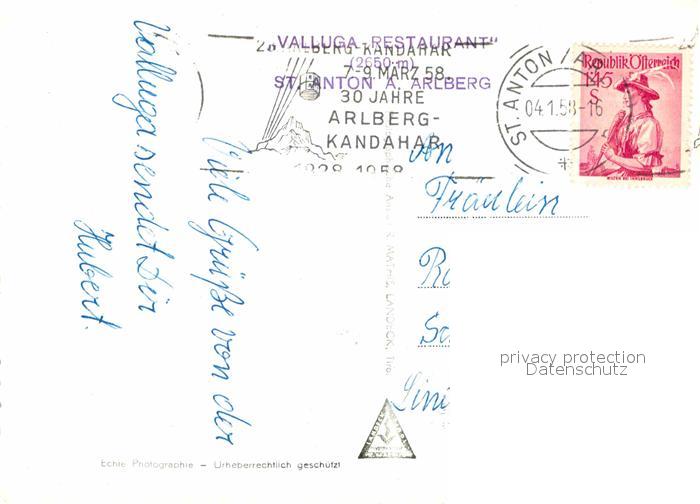 "VALLUGA-RESTAURANT"
(2650 m)
ST. ANTON A. ARLBERG
ARLBERG-KANDAHAR
7-9 MÄRZ 58.
30 JAHRE
ARLBERG-
KANDAHAR
1928-1958
ST. ANTON
04.1.58-16
Republik Österreich
1.45
S
Viele Grüße von der
Valluga sendet Dir
Hubert.
An
Fräulein
MATHIS, LANDECK, Tirol
privacy protection
Datenschutz
Echte Photographie – Urheberrechtlich geschützt